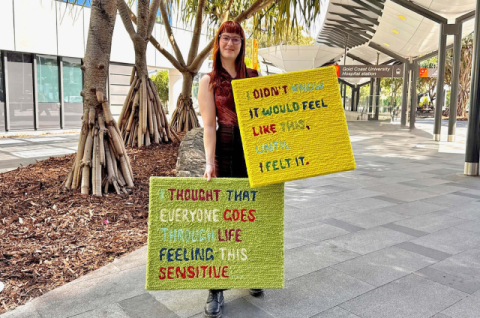 Gold Coast University
Hospital station
I DIDN'T KNOW
IT WOULD FEEL
LIKE THIS,
UNTIL
I FELT IT.
I THOUGHT THAT
EVERYONE GOES
THROUGH LIFE
FEELING THIS
SENSITIVE